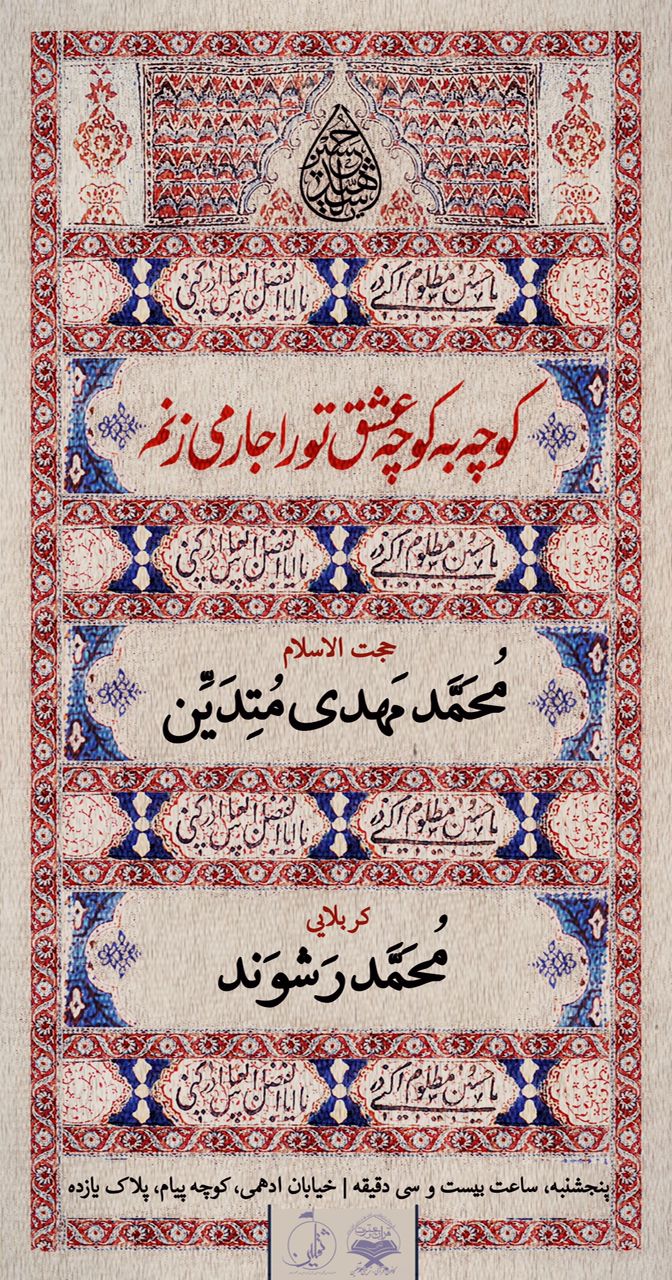 یا حسین شهید
یا حسین مظلوم ادرکنی یا اباالفضل العباس ادرکنی
کوچه به کوچه عشق تو را جار می زنم
یا حسین مظلوم ادرکنی یا اباالفضل العباس ادرکنی
حجت الاسلام
مُحَمَّد مَهدی مُتِدَیِّن
یا حسین مظلوم ادرکنی یا اباالفضل العباس ادرکنی
کربلایی
مُحَمَّد رَشوَند
یا حسین مظلوم ادرکنی یا اباالفضل العباس ادرکنی
پنجشنبه، ساعت بیست و سی دقیقه | خیابان ادهمی، کوچه پیام، پلاک یازده